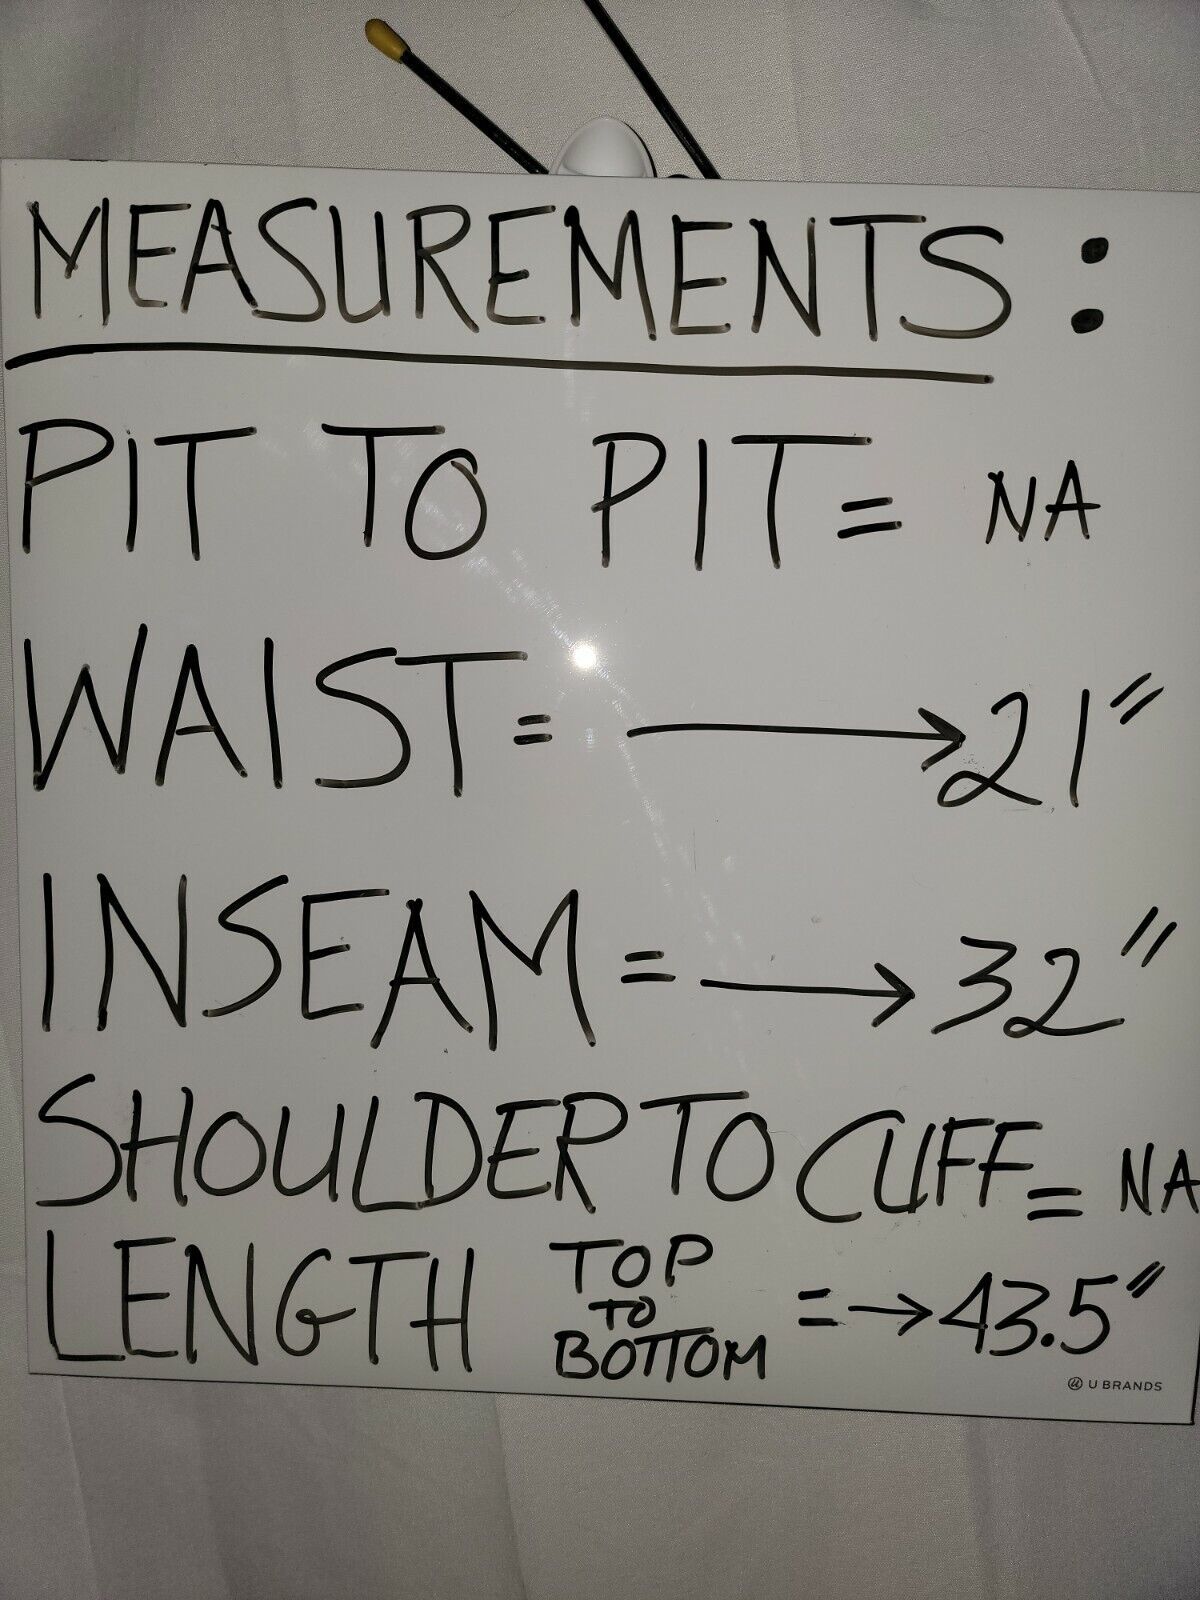 MEASUREMENTS:
PIT TO PIT = NA
WAIST = → 21"
INSEAM = → 32"
SHOULDER TO CUFF = NA
LENGTH TOP TO BOTTOM = → 43.5"
U BRANDS